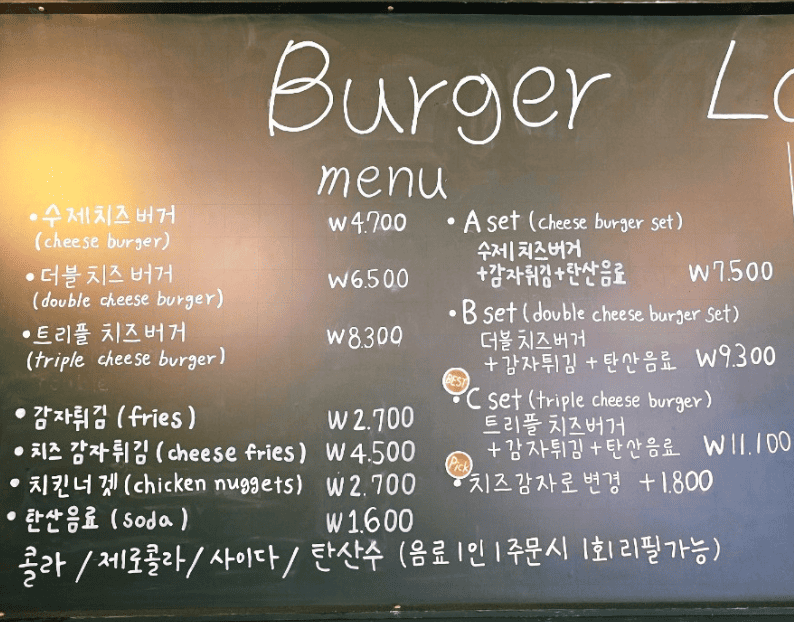 Burger
menu
• 수제치즈버거 ₩4.700
(cheese burger)
• 더블치즈버거 ₩6.500
(double cheese burger)
• 트리플 치즈버거 ₩8.300
(triple cheese burger)
• 감자튀김 (fries) ₩2.700
• 치즈 감자튀김 (cheese fries) ₩4.500
• 치킨너겟 (chicken nuggets) ₩2.700
• 탄산음료 (soda) ₩1.600
콜라 / 제로콜라 / 사이다 / 탄산수 (음료 1인 1주문시 1회 리필가능)
• A set (cheese burger set)
수제치즈버거
+감자튀김+탄산음료 ₩7.500
• B set (double cheese burger set)
더블치즈버거
+감자튀김 +탄산음료 ₩9.300
BEST
• C set (triple cheese burger)
트리플 치즈버거
+감자튀김+탄산음료 ₩11.100
Pick
• 치즈감자로 변경 +1.800